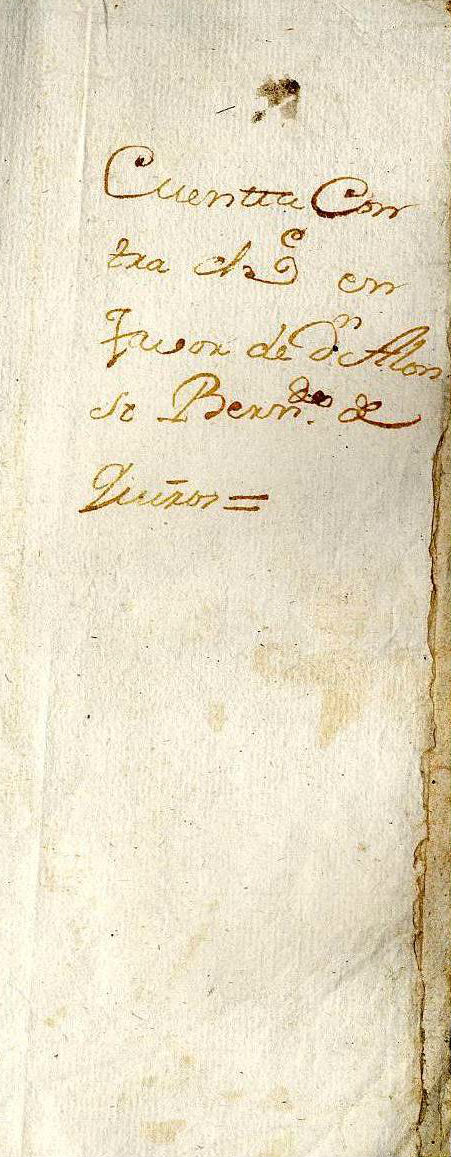 Cuentta Con
tra el Cº en
favor de Dn Alon
so Berndo de
Quiños =